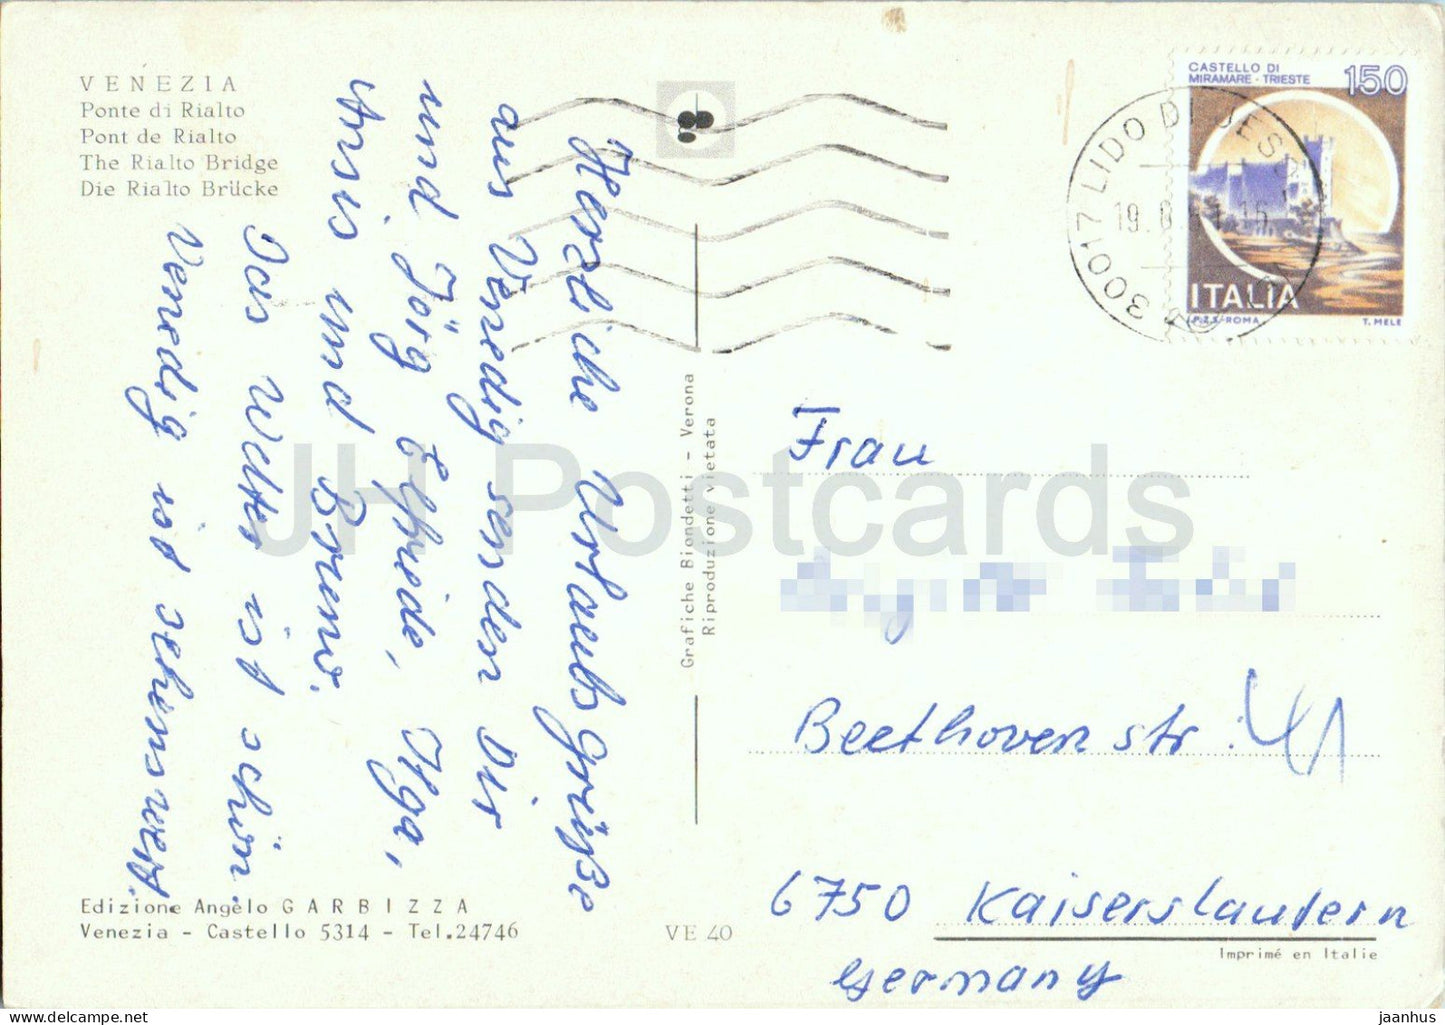 VENEZIA
Ponte di Rialto
Pont de Rialto
The Rialto Bridge
Die Rialto Brücke
Herzliche Urlaubsgrüße
aus Venedig senden Dir
und Jörg Elfriede, Ilga,
und Bruno.
Das Wetter ist schön.
Venedig ist sehenswert.
Edizione Angelo GARBIZZA
Venezia - Castello 5314 - Tel.24746
VE 40
Grafiche Biondetti - Verona
Riproduzione vietata
CASTELLO DI
MIRAMARE - TRIESTE
150
ITALIA
I.P.Z.S.-ROMA
T. MELE
30017 LIDO DI JESOLO
Frau
Beethovenstr. 41
6750 Kaiserslautern
Germany
Imprimé en Italie
JH Postcards
jaanhus @ delcampe.net